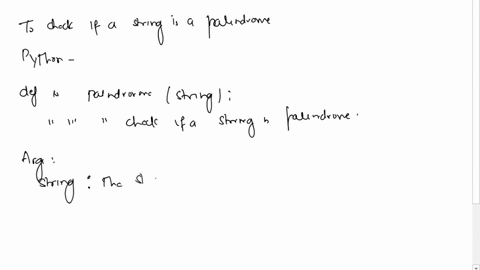 To check if a string is a palindrome
Python -
def is palindrome (string):
" "" " check if a string is palindrome.
Arg:
string : The